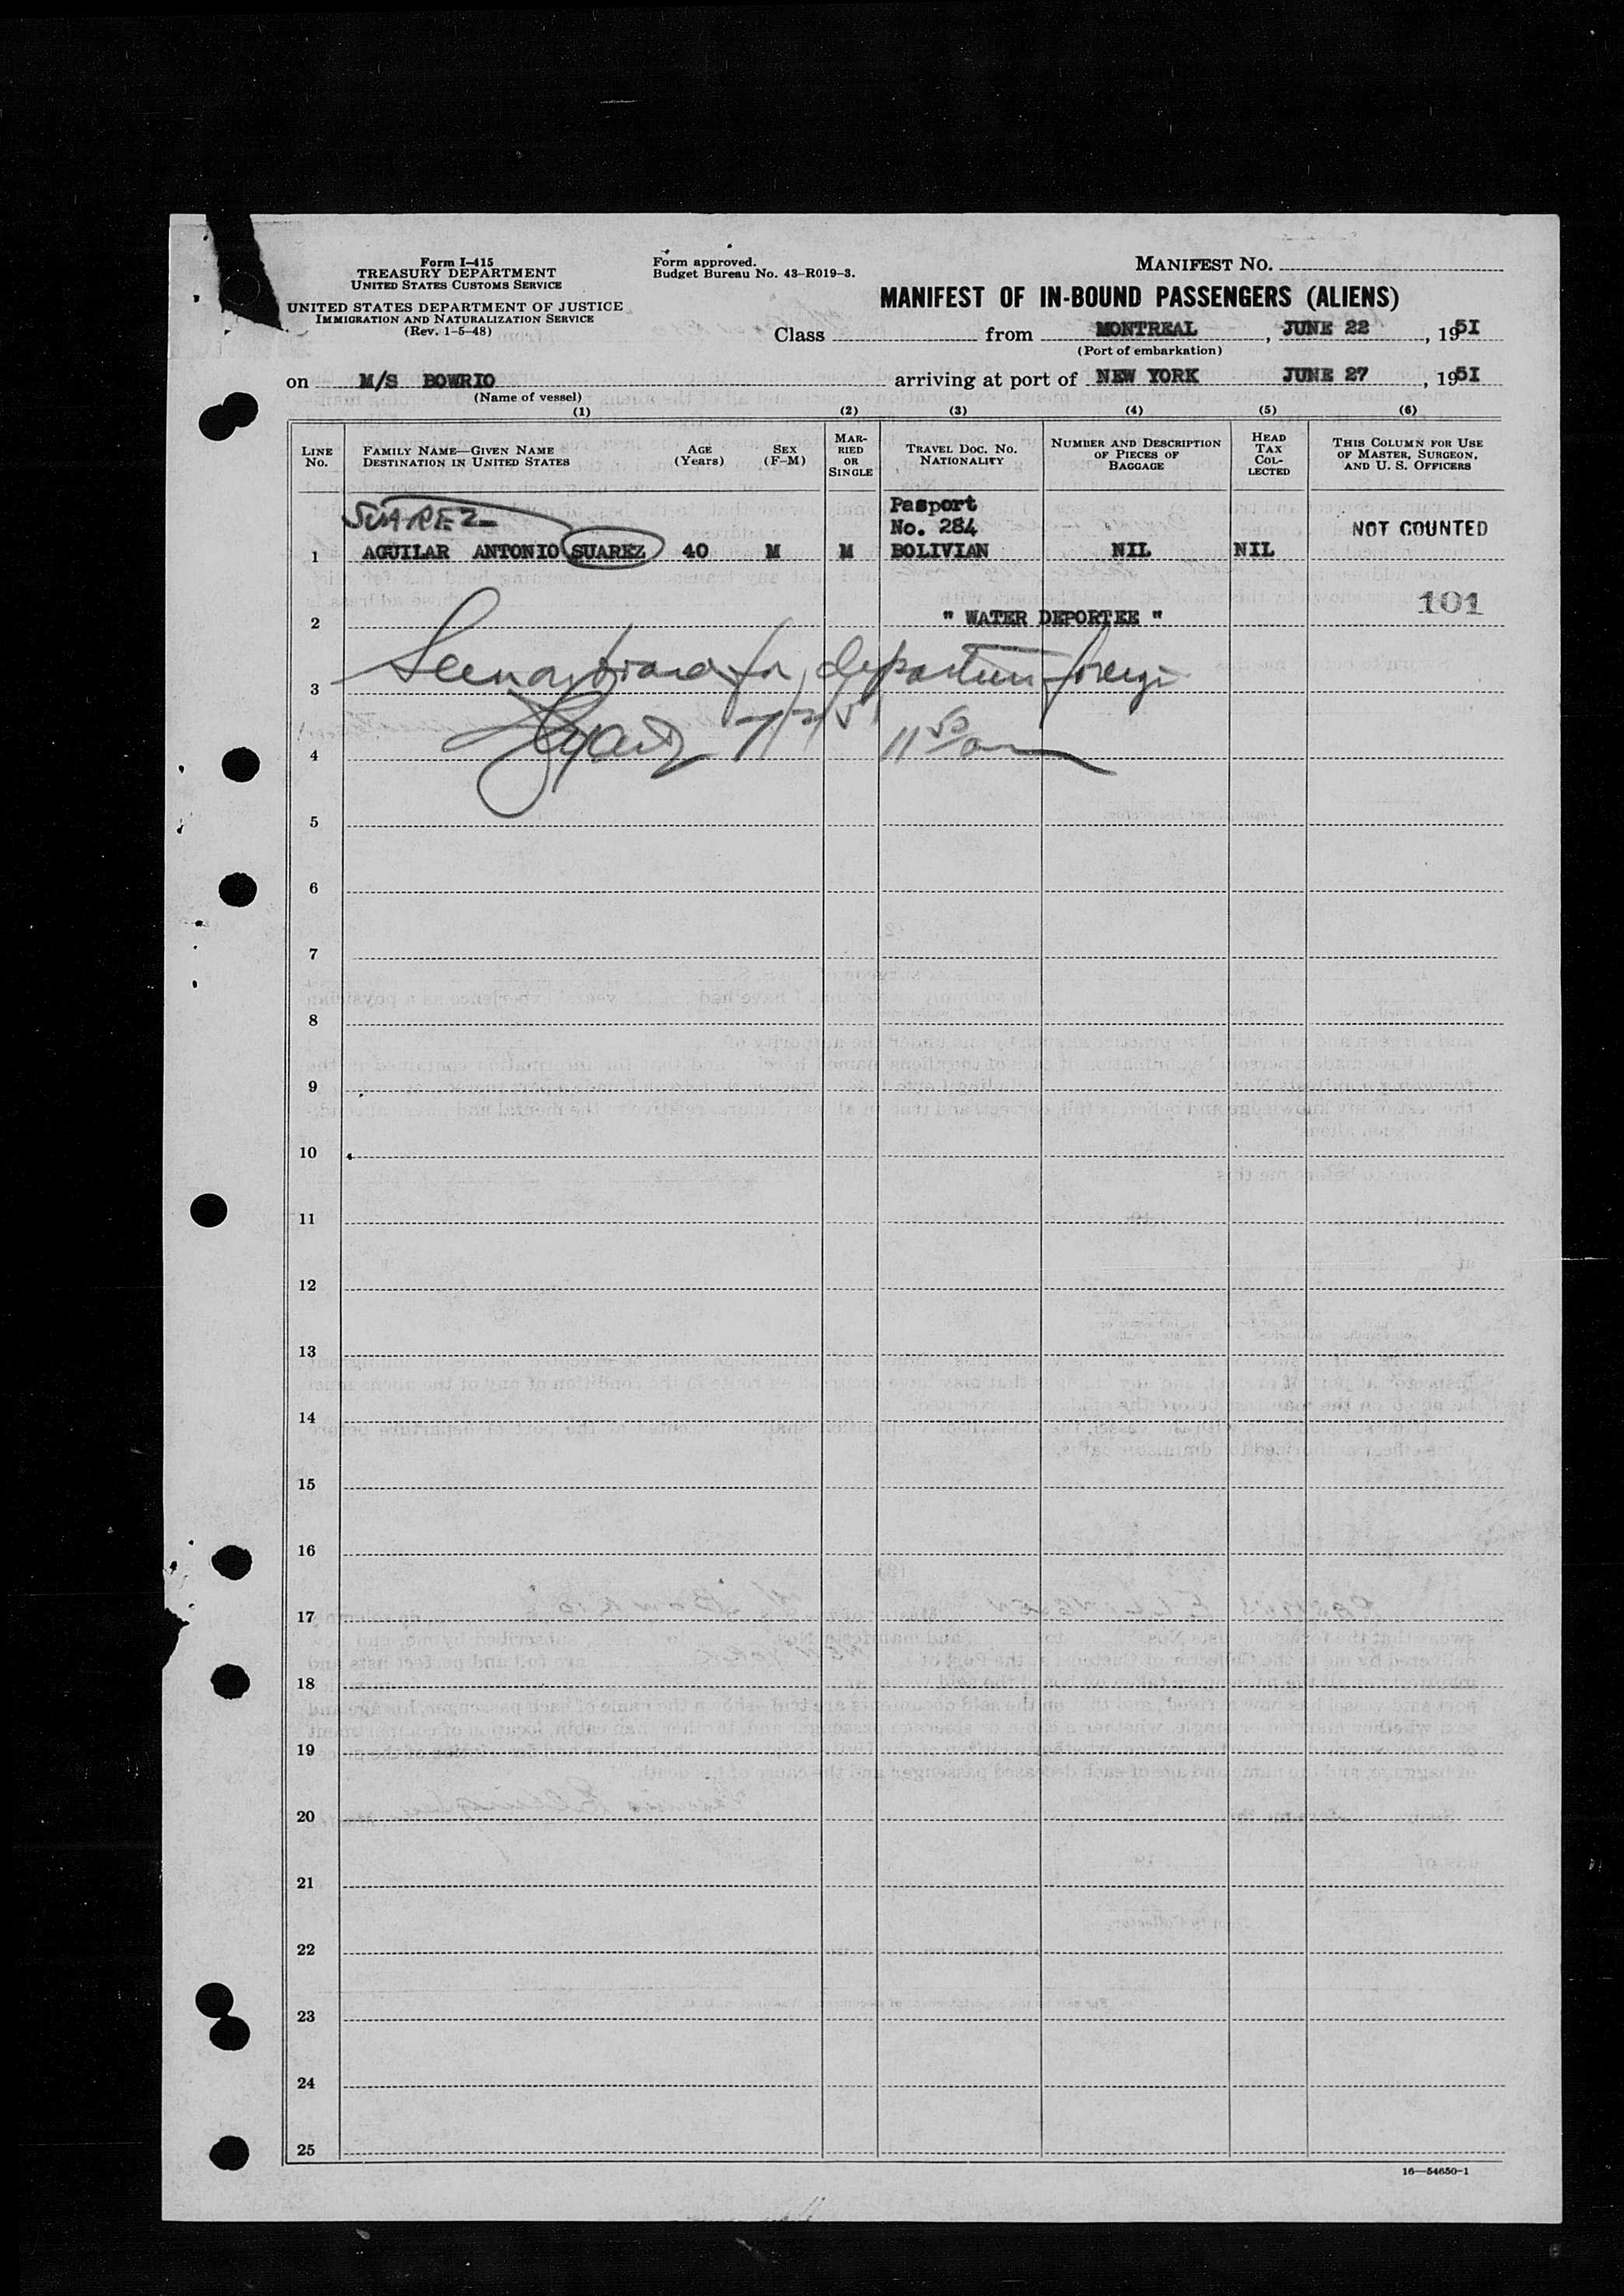 Form I-415
TREASURY DEPARTMENT
UNITED STATES CUSTOMS SERVICE
UNITED STATES DEPARTMENT OF JUSTICE
IMMIGRATION AND NATURALIZATION SERVICE
(Rev. 1-5-48)
Form approved.
Budget Bureau No. 43-R019-3.
MANIFEST NO.
MANIFEST OF IN-BOUND PASSENGERS (ALIENS)
Class from MONTREAL, JUNE 22, 1951
(Port of embarkation)
on M/S BOWRIO arriving at port of NEW YORK JUNE 27, 1951
(Name of vessel)
(1) (2) (3) (4) (5) (6)
LINE No.
FAMILY NAME—GIVEN NAME
DESTINATION IN UNITED STATES
AGE (Years)
SEX (F-M)
MARRIED OR SINGLE
TRAVEL DOC. NO.
NATIONALITY
NUMBER AND DESCRIPTION OF PIECES OF BAGGAGE
HEAD TAX COLLECTED
THIS COLUMN FOR USE OF MASTER, SURGEON, AND U. S. OFFICERS
SUAREZ
Pasport
No. 284
NOT COUNTED
1 AGUILAR ANTONIO SUAREZ 40 M M BOLIVIAN NIL NIL
101
2 " WATER DEPORTEE "
Seen on board for departure foreign
3
11 50 am
4
5
6
7
8
9
10
11
12
13
14
15
16
17
18
19
20
21
22
23
24
25
16—54650-1